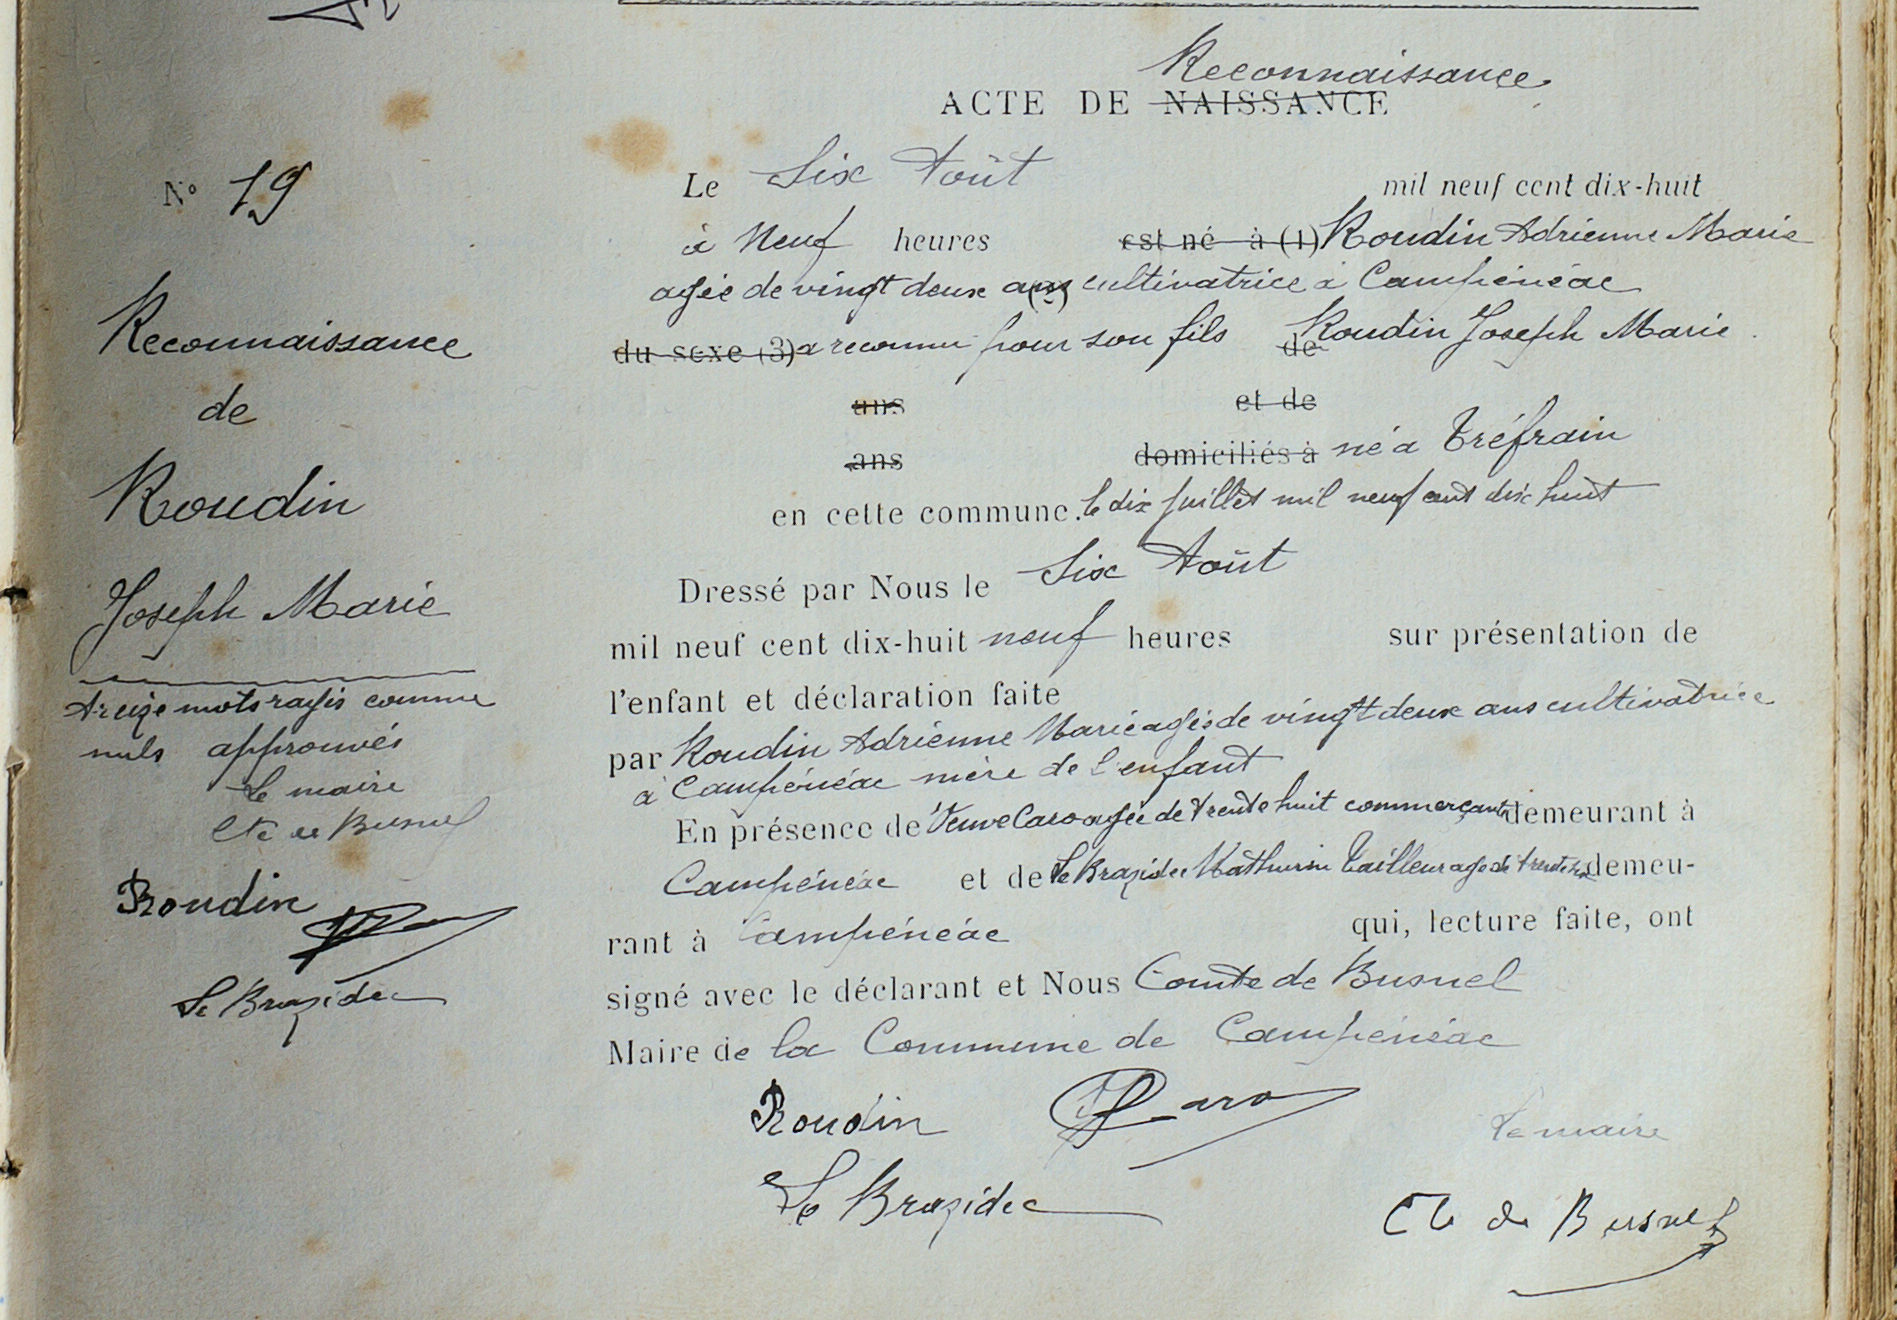 N° 19
Reconnaissance
de
Roudin
Joseph Marie
treize mots rayés comme
nuls approuvés
Le maire
Cte de Busnel
Roudin
Le Brazidec
Reconnaissance
ACTE DE NAISSANCE
Le Six Août mil neuf cent dix-huit
à Neuf heures est né à (1) Roudin Adrienne Marie
agée de vingt deux ans cultivatrice à Campénéac
du sexe (3) a reconnu pour son fils de Roudin Joseph Marie
ans et de
ans domiciliés à né à Tréfrain
en cette commune. le dix Juillet mil neuf cent dix huit
Dressé par Nous le Six Août
mil neuf cent dix-huit neuf heures sur présentation de
l'enfant et déclaration faite
par Roudin Adrienne Marie agée de vingt deux ans cultivatrice
à Campénéac mère de l'enfant
En présence de Veuve Caro agée de trente huit commerçante demeurant à
Campénéac et de Le Brazidec Mathurin Tailleur agé de demeu-
rant à Campénéac qui, lecture faite, ont
signé avec le déclarant et Nous Comte de Busnel
Maire de la Commune de Campénéac
Roudin Caro Le maire
Le Brazidec Cte de Busnel